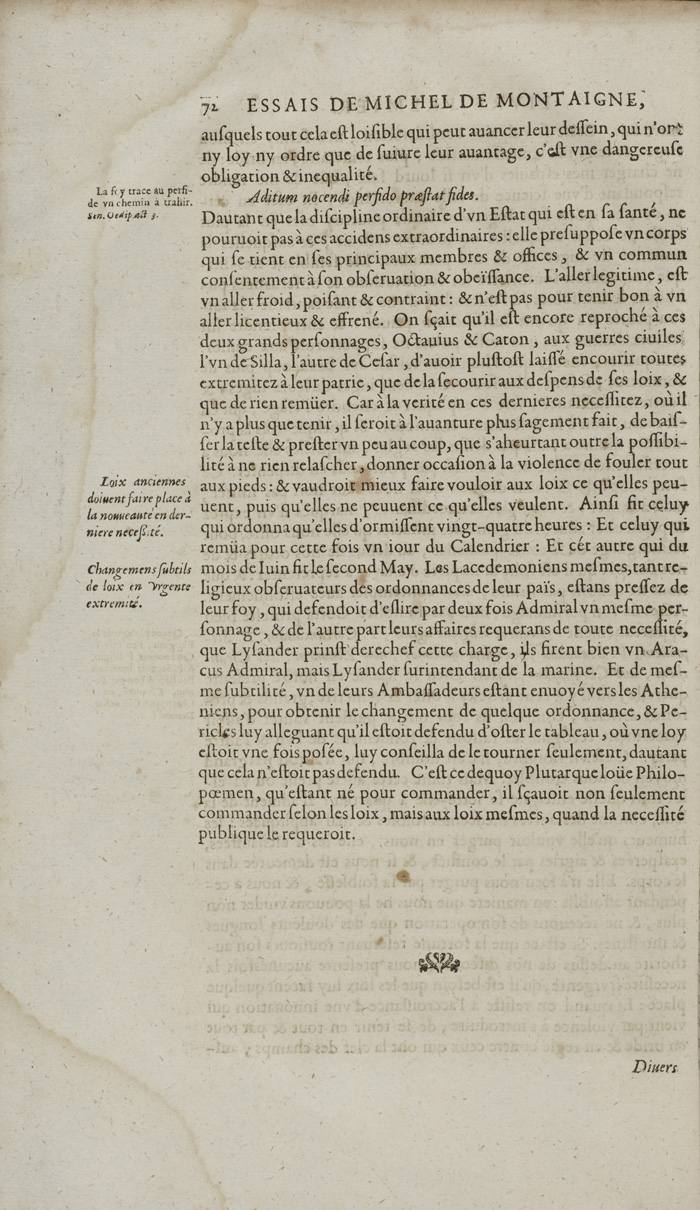 72 ESSAIS DE MICHEL DE MONTAIGNE,
auſquels tout cela eſt loiſible qui peut auancer leur deſſein, qui n'ont
ny loy ny ordre que de ſuiure leur auantage, c'eſt vne dangereuſe
obligation & inequalité.
La foy trace au perfi-
de vn chemin à trahir.
Sen. Oedip. act 3.
Aditum nocendi perfido præſtat fides.
Dautant que la diſcipline ordinaire d'vn Eſtat qui eſt en ſa ſanté, ne
pouruoit pas à ces accidens extraordinaires : elle preſuppoſe vn corps
qui ſe tient en ſes principaux membres & offices, & vn commun
conſentement à ſon obſeruation & obeïſſance. L'aller legitime, eſt
vn aller froid, poiſant & contraint : & n'eſt pas pour tenir bon à vn
aller licentieux & effrené. On ſçait qu'il eſt encore reproché à ces
deux grands perſonnages, Octauius & Caton, aux guerres ciuiles
l'vn de Silla, l'autre de Ceſar, d'auoir pluſtoſt laiſſé encourir toutes
extremitez à leur patrie, que de la ſecourir aux deſpens de ſes loix, &
que de rien remüer. Car à la verité en ces dernieres neceſſitez, où il
n'y a plus que tenir, il ſeroit à l'auanture plus ſagement fait, de baiſ-
ſer la teſte & preſter vn peu au coup, que s'aheurtant outre la poſſibi-
lité à ne rien relaſcher, donner occaſion à la violence de fouler tout
aux pieds : & vaudroit mieux faire vouloir aux loix ce qu'elles peu-
uent, puis qu'elles ne peuuent ce qu'elles veulent. Ainſi fit celuy
qui ordonna qu'elles d'ormiſſent vingt-quatre heures : Et celuy qui
remüa pour cette fois vn iour du Calendrier : Et cét autre qui du
mois de Iuin fit le ſecond May. Les Lacedemoniens meſmes, tant re-
ligieux obſeruateurs des ordonnances de leur païs, eſtans preſſez de
leur foy, qui defendoit d'eſlire par deux fois Admiral vn meſme per-
ſonnage, & de l'autre part leurs affaires requerans de toute neceſſité,
que Lyſander prinſt derechef cette charge, ils firent bien vn Ara-
cus Admiral, mais Lyſander ſurintendant de la marine. Et de meſ-
me ſubtilité, vn de leurs Ambaſſadeurs eſtant enuoyé vers les Athe-
niens, pour obtenir le changement de quelque ordonnance, & Pe-
ricles luy alleguant qu'il eſtoit defendu d'oſter le tableau, où vne loy
eſtoit vne fois poſée, luy conſeilla de le tourner ſeulement, dautant
que cela n'eſtoit pas defendu. C'eſt ce dequoy Plutarque loüe Philo-
pœmen, qu'eſtant né pour commander, il ſçauoit non ſeulement
commander ſelon les loix, mais aux loix meſmes, quand la neceſſité
publique le requeroit.
Loix anciennes
doiuent faire place à
la nouueauté en der-
niere neceſſité.
Changemens ſubtils
de loix en vrgente
extremité.
Diuers